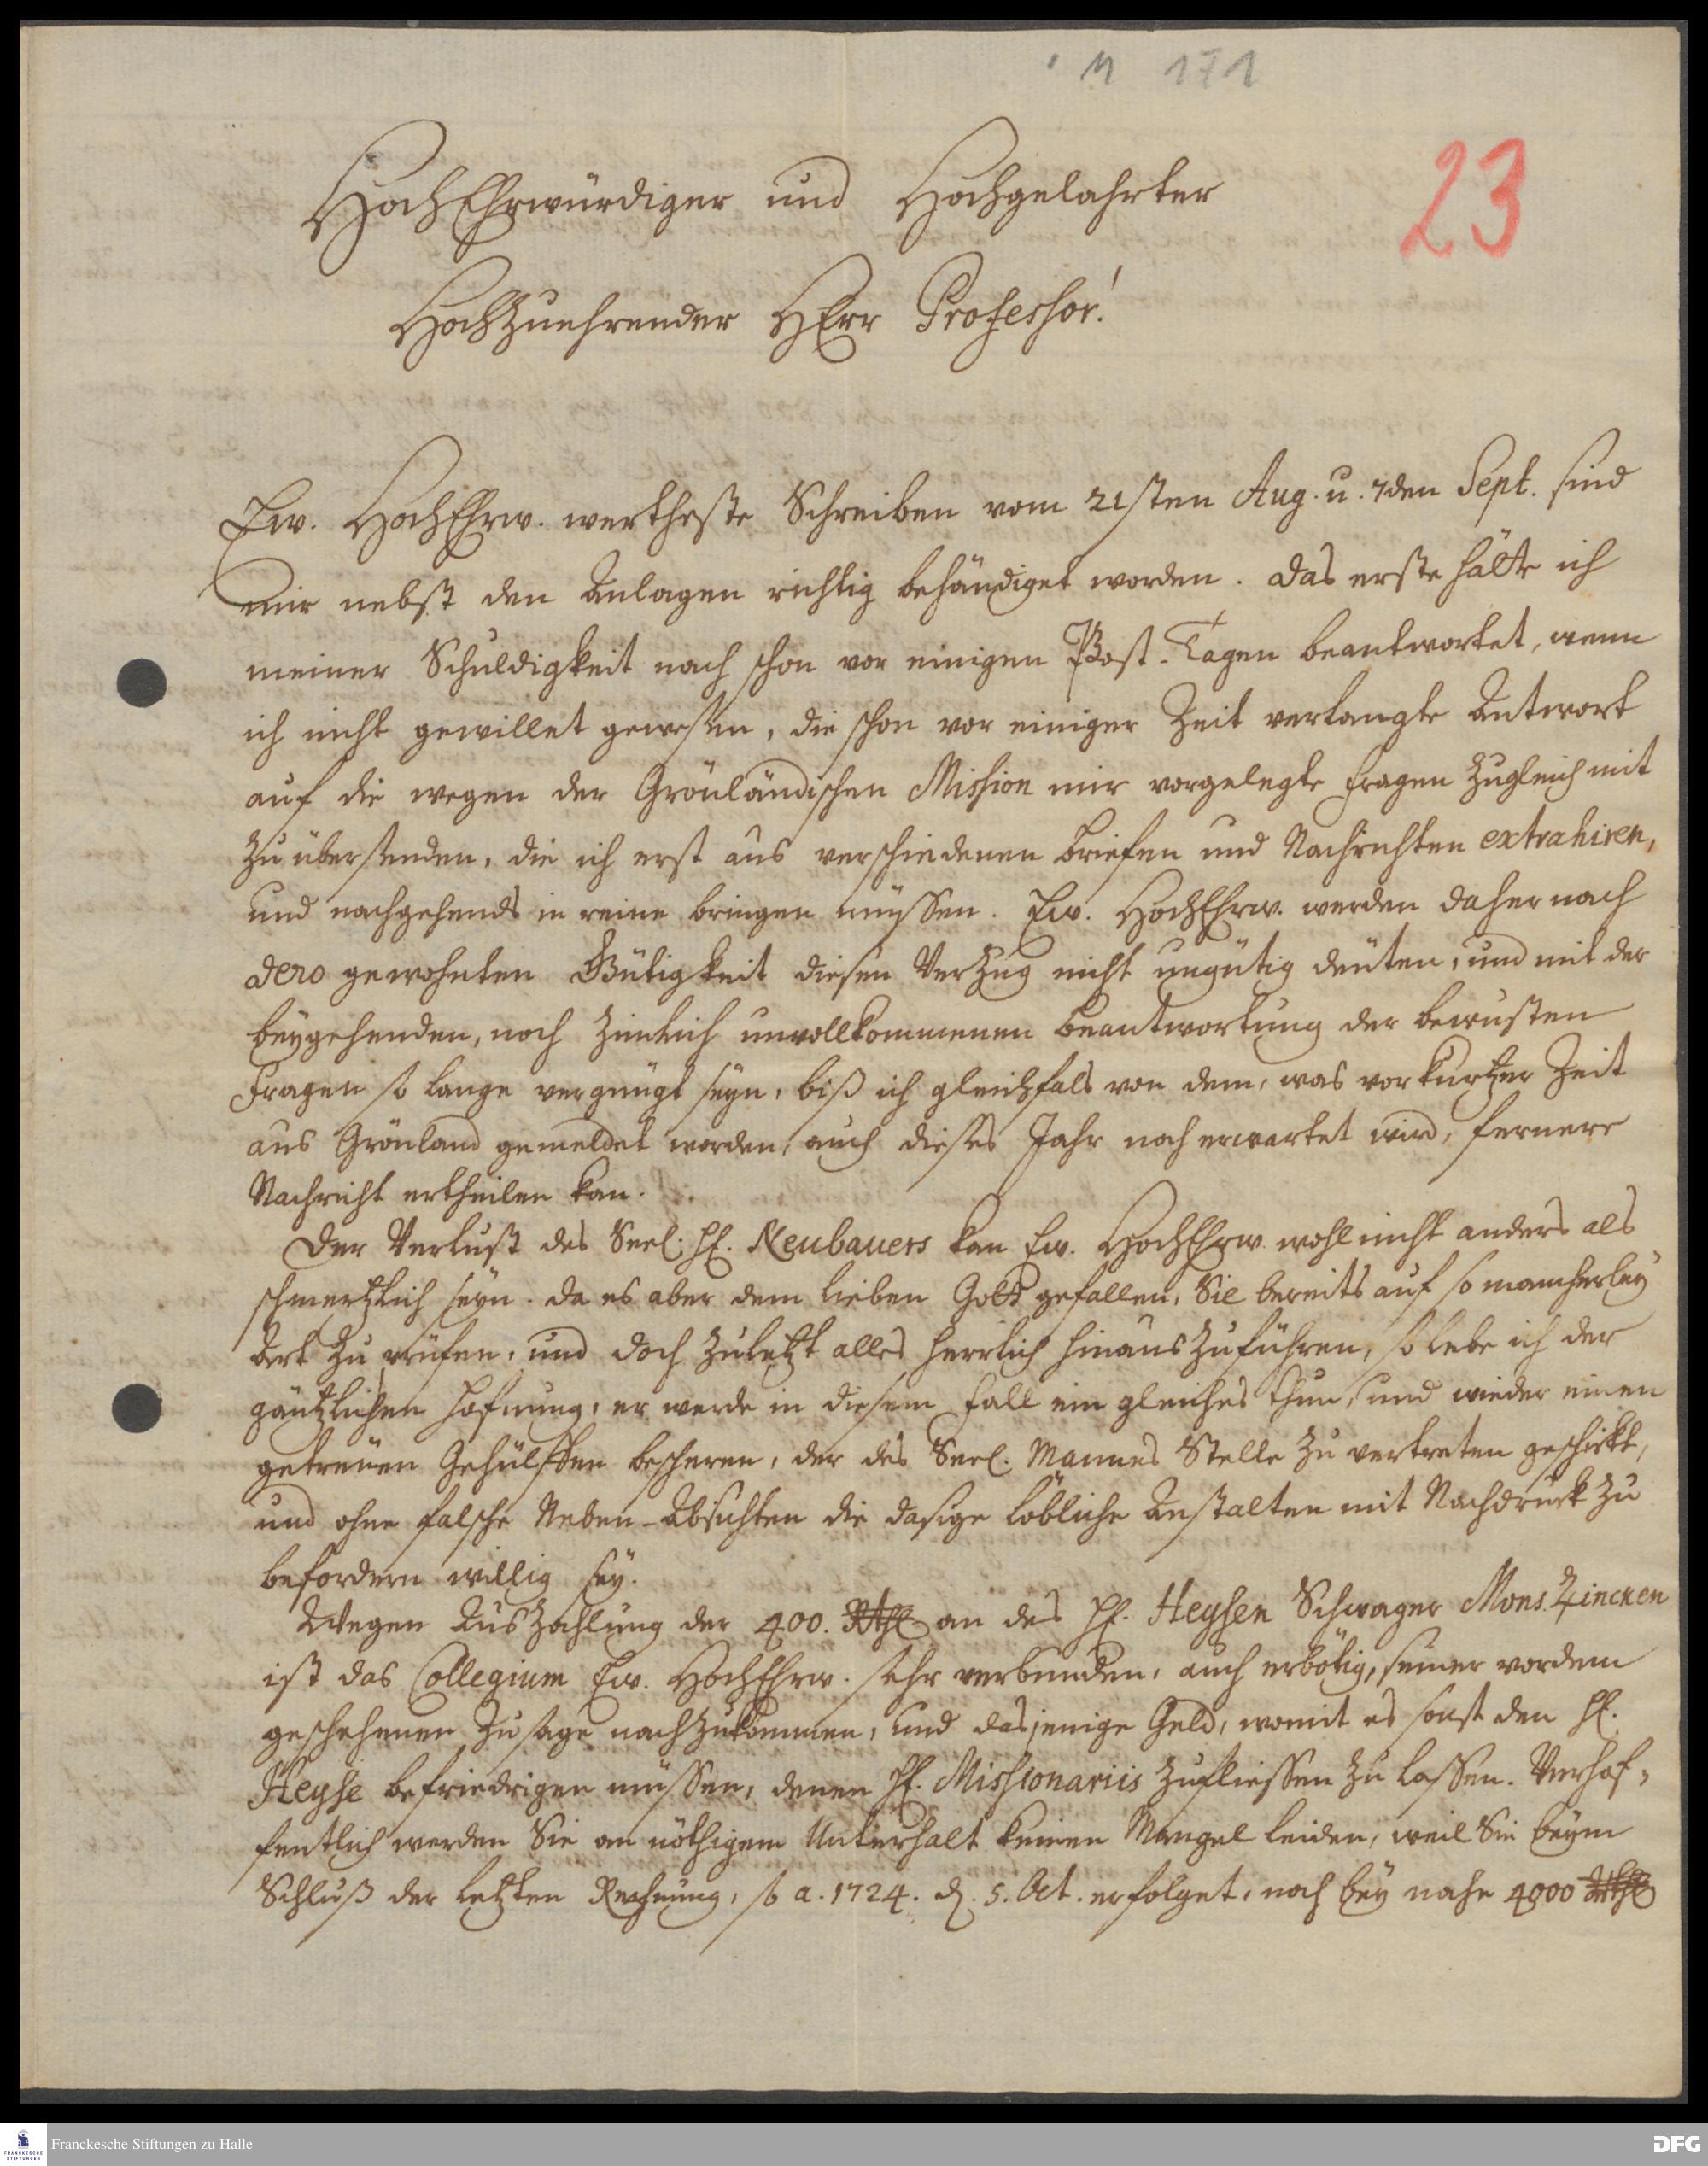 M 171
23
HochEhrwürdiger und Hochgelahrter
HochZuehrender HErr Professor!
Ew. HochEhrw. wertheste Schreiben vom 21sten Aug. u. 7den Sept. sind
mir nebst den Anlagen richtig behändiget worden. Das erste hätte ich
meiner Schuldigkeit nach schon vor einigen Post-Tagen beantwortet, wenn
ich nicht gewillet gewesen, die schon vor einiger Zeit verlangte Antwort
auf die wegen der Grönländischen Mission mir vorgelegte Fragen zugleich mit
zu übersenden, die ich erst aus verschiedenen Briefen und Nachrichten extrahiren,
und nachgehends in reine bringen müssen. Ew. HochEhrw. werden daher nach
dero gewohnten Gütigkeit diesen Verzug nicht ungütig deuten, und mit der
beygehenden, noch zimlich unvollkommenen Beantwortung der bewusten
Fragen so lange vergnügt seyn, biß ich gleichfals von dem, was vor kurtzer Zeit
aus Grönland gemeldet worden, auch dieses Jahr noch erwartet wird, fernere
Nachricht ertheilen kan.
Der Verlust des Seel. H. Neubauers kan Ew. HochEhrw. wohl nicht anders als
schmertzlich seyn. Da es aber dem lieben Gott gefallen, Sie bereits auf so mancherley
Art zu prüfen, und doch zuletzt alles herrlich hinaus zuführen, so lebe ich der
gäntzlichen Hofnung, er werde in diesem Fall ein gleiches thun, und wieder einen
getreuen Gehülffen bescheren, der des Seel. Mannes Stelle zu vertreten geschickt,
und ohne falsche Neben-Absichten die dasige löbliche Anstalten mit Nachdruck zu
befordern willig sey.
Wegen AusZahlung der 400. Rthl an des H. Heysen Schwager Mons. Zincken
ist das Collegium Ew. HochEhrw. sehr verbunden, auch erbötig, seiner vordem
geschehenen Zusage nachzukommen, und dasjenige Geld, womit es sonst den H.
Heyse befriedigen müssen, denen H. Missionariis zufliessen zu lassen. Verhof-
fentlich werden Sie an nöthigem Unterhalt keinen Mangel leiden, weil Sie beym
Schluß der letzten Rechnung, so a. 1724. d. 5. Oct. erfolget, noch bey nahe 4000 Rthl
Franckesche Stiftungen zu Halle
FRANCKESCHE STIFTUNGEN
DFG